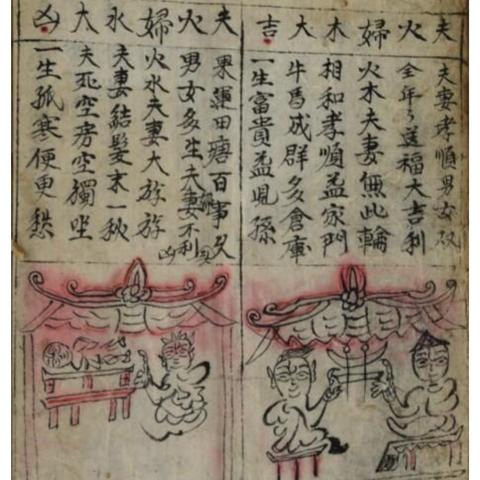 夫火婦木大吉
夫妻孝順男女双
全年々送福大吉利
火木夫妻無比輪
相和孝順益家門
牛馬成群多倉庫
一生富貴益児孫
夫火婦水太凶
田塘百事久
男女多生夫妻不利
火水夫妻大族族
夫妻結髮末一秋
夫死空房空獨坐
一生孤寒便更愁